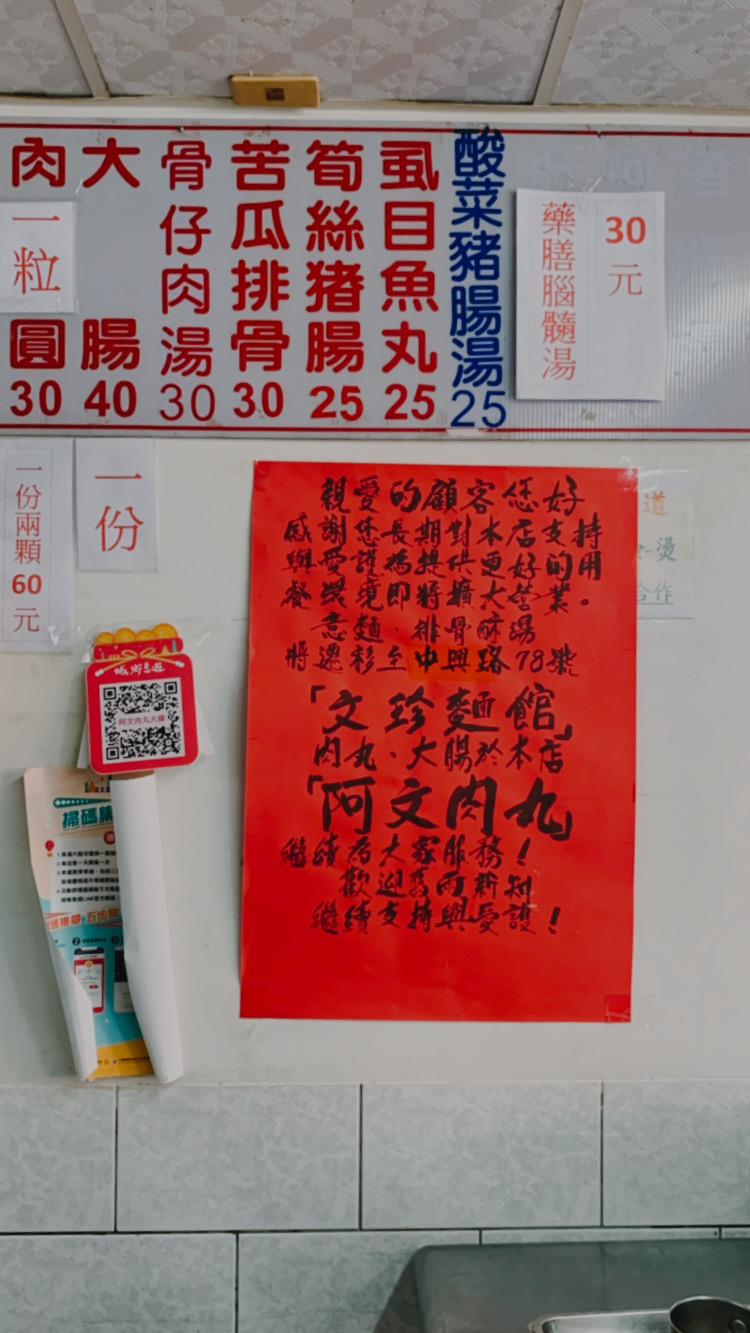 肉
一粒
圓
30
大
腸
40
骨仔肉湯
30
苦瓜排骨
30
筍絲猪腸
25
虱目魚丸
25
酸菜豬腸湯
25
藥膳腦髓湯
30元
一份兩顆60元
一份
親愛的顧客您好
感謝您長期對本店支持
與愛護為提供更好的用
餐環境即將擴大營業。
意麵、排骨酥湯
將遷移至中興路78號
「文珍麵館」
肉丸、大腸於本店
「阿文肉丸」
繼續為大家服務！
歡迎舊雨新知
繼續支持與愛護！
道
燙
合作
城鄉悠遊
阿文肉丸大腸
掃碼集